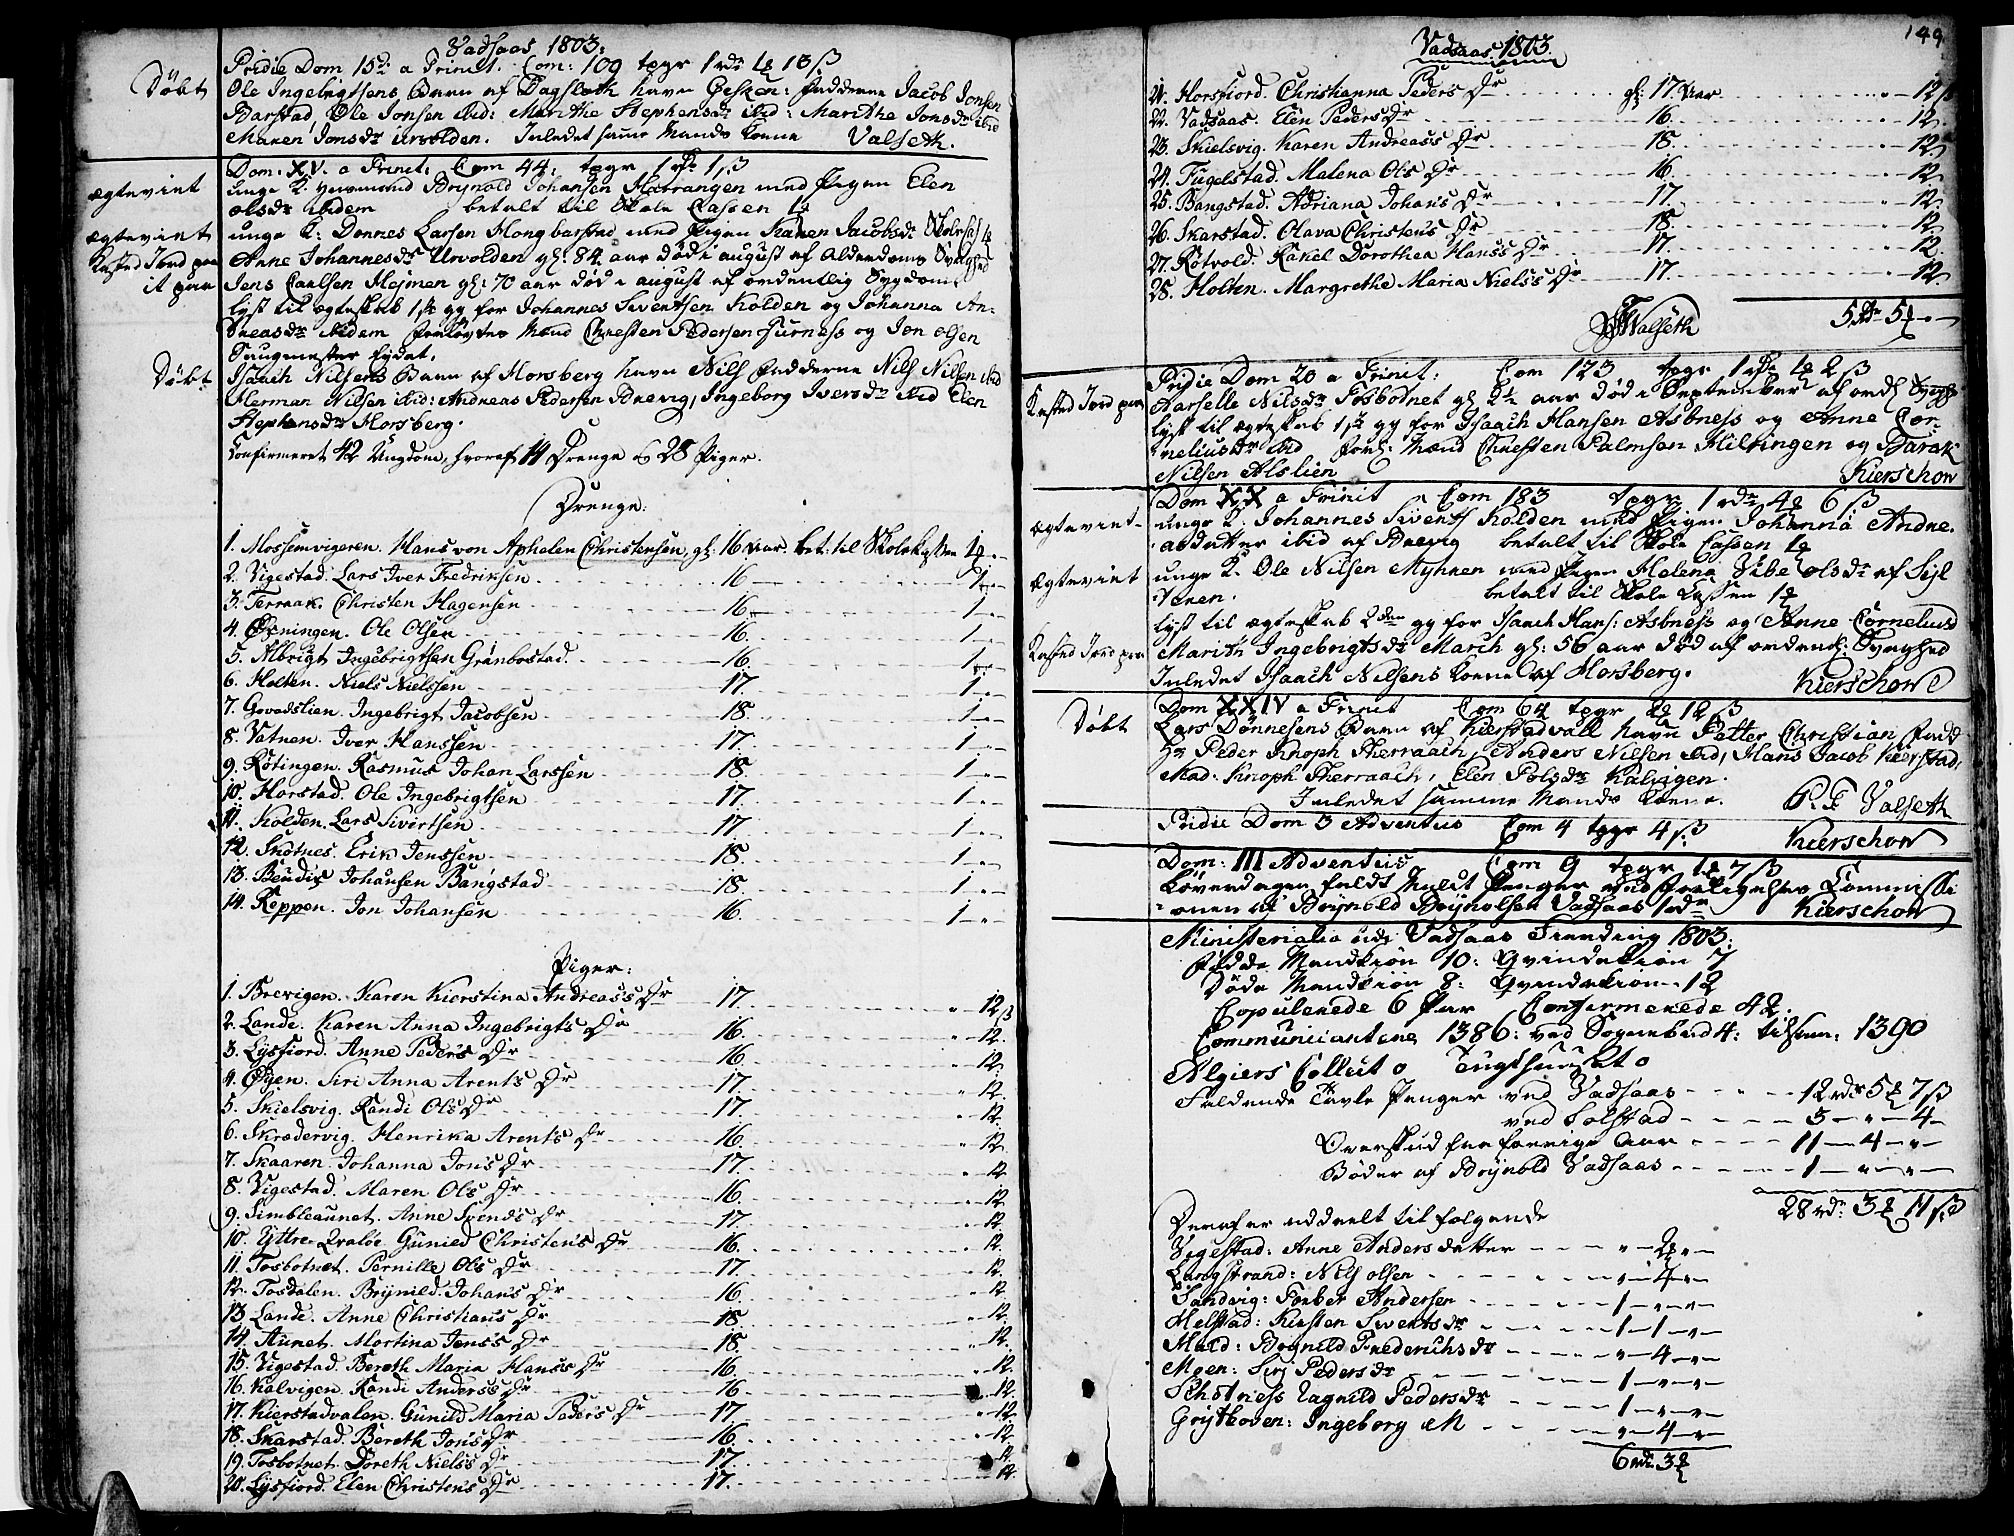 Vadsaas 1803:
Pridie Dom 15de a Trinit. Com: 109 tpgr 1 rdr 1 ₰ 13 ß
Døbt
Ole Ingebrigtsens Barn af Dagsloth Navn Fadderne Jacob Jonsen
Barstad, Ole Jonsen ibid: Marithe Stephensdr ibid: Marithe Jonsdr ibid
Maren Jonsdr Urvolden. Inledet samme Mands Kone Valseth.
Dom: XV. a Trinit: Com 44: tpgr
ægteviet
unge K: Brynold Johansen Hatrangen med Pigen Elen
olsdr ibidem betalt til Skole Cassen
ægteviet
unge K: Dønnes Larsen Hongbarstad med Pigen Karen Jacobsdr
Kasted Jord paa
Anne Johannesdr Urvolden gl: 84 aar død i august af Alderdoms Svaghed
it paa
Jens Carlsen Hejmen gl: 70 aar død i august af ordentlig Sygdom
lyst til ægteskab 1ste gg for Johannes Siventsen Kolden og Johanna An-
dreasdr ibidem forlovtes Mænd Christen Pedersen Furness og Jon olsen
Saugmester Eydet.
Døbt
Isaach Nilsens Barn af Horsberg Navn Nils Fadderne Nils Nilsen ibid
Herman Nilsen ibid: Andreas Pedersen Brevig, Ingeborg Iversdr ibid Elen
Stephensdr Horsberg.
Confirmeret 42 Ungdom, hvoraf 14 Drenge og 28 Piger.
Drenge:
1. Mossemvigeren. Hans von Aphelen Christensen, gl: 16 Aar bet: til Skolekassen 1
2. Vigestad. Lars Iver Fredriksen 16 1
3. Terraak. Christen Hagensen 16 1
4. Ole Olsen 16 1
5. Albrigt Ingebrigtsen Grønbostad 16 1
6. Holten. Niels Nielssen 17 1
7. Govadslien. Ingebrigt Jacobsen 18 1
8. Vatnen. Iver Hanssen 17 1
9. Røtingen. Rasmus Johan Larssen 18 1
10. Horstad. Ole Ingebrigtsen 17 1
11. Kolden. Lars Sivertsen 17 1
12. Skotnes. Erik Jenssen 18 1
13. Bendix Johansen Bangstad 18 1
14. Reppen. Jon Johansen 16 1
Piger:
1. Brevigen. Karen Kierstina Andreas's Dr 17 12 ß
2. Lande. Karen Anna Ingebrigts Dr 16 12
3. Lysfiord. Anne Peders Dr 16 12
4. Øyen. Siri Anna Arents Dr 17 12
5. Skielsvig. Randi Ols Dr 17 12
6. Skrædervig. Henrika Arents Dr 16 12
7. Skaaren. Johanna Jons Dr 17 12
8. Vigestad. Maren Ols Dr 16 12
9. Simbleaunet. Anne Svends Dr 17 12
10. Yttre Qvaløe. Gunild Christens Dr 16 12
11. Tosbotnet. Pernille Ols Dr 17 12
12. Tosdalen. Brynild. Johans Dr 16 12
13. Lande. Anne Christians Dr 18 12
14. Aunet. Martina Jens's Dr 18 12
15. Vigestad. Bereth Maria Hans's Dr 16 12
16. Kalvigen. Randi Anders's Dr 16 12
17. Kierstadvalen. Gunild Maria Peders Dr 17 12
18. Skarstad. Bereth Jons Dr 16 12
19. Tosbotnet. Doreth Niels's Dr 17 12
20. Lysfiord. Elen Christens Dr 17 12
149
Vadsaas 1803.
21. Horsfiord. Christianna Peders Dr gl: 17 Aar 12 ß
22. Vadsaas. Elen Peders Dr 16 12
23. Skielsvig. Karen Andreas's Dr 18 12
24. Fuglestad. Malena Ols Dr 16 12
25. Bangstad. Adriana Johans Dr 17 12
26. Skarstad. Olava Christens Dr 18 12
27. Røtvold. Rakel Dorothea Hans's Dr 17 12
28. Holten. Margrethe Maria Niels's Dr 17 12
Valseth 5 rdr 5
Pridie Dom 20 a Trinit: Com 123 tpgr 1 rdr 2 ß
Kasted Jord paa
Nilsdr Tosbotnet gl 2½ aar død i September af ord:
lyst til ægteskab 1ste gg for Isaach Hansen Asbness og Anne Cor-
neliusdr ibid forl: Mænd Christen Palmsen Hilstingen og Barak
Nilsen Alslien Kierschow
Dom XX a Trinit Com 183 tpgr 1 rdr 4 6 ß
ægteviet
unge K. Johannes Sivents Kolden med Pigen Johanna Andre-
asdatter ibid af Brevig betalt til Skole Cassen 1
ægteviet
unge K. Ole Nilsen Myhren med Pigen Helena Vibe olsdr af
betalt til Skole Cassen 1
lyst til ægteskab 2den gg for Isaach Hans: Asbness og Anne Cornelius
Kasted Jord paa
Marith Ingebrigtsdr March gl: 56 aar død af ordentl: Svaghed
Inledet Isaach Nilsens Kone af Horsberg. Kierschow
Døbt
Dom XXIV a Trinit Com 64 tpgr 12 ß
Lars Dønnesens Barn af Kierstadvall Navn Petter Christian, Fadd
Hr Peder Knoph Therraach, Anders Nilsen ibid, Hans Jacob Kierstad,
Mad: Knoph Therraach, Elen Polsdr Kalvigen.
Inledet samme Mands Kone. P. F. Valseth
Pridie Dom 3 Adventus Com 4 tpgr 4 ß Kierschow
Dom: III Adventus Com 9 tpgr 7 ß
Løverdagen faldt Mulct Penger ved Forligelses Commissi
onen af Brynold Brynolsen Vadsaas 1 rdr Kierschow
Ministerialia udi Vadsaas Fierding 1803:
Fødde Mandkiøn 10: Qvindekiøn 7
Døde Mandkiøn 8: Qvindekiøn 12
Copulerede 6 Par Confirmerede 42:
Communicantene 1386: ved Sognebud 4: tilsam: 1390
Algiers Collect 0 Tugthuuset 0
Faldende Tavle Penger ved Vadsaas 12 rdr 5 7 ß
ved Solstad 3 „ 4
Overskud fra forrige Aar 11 4 „
Bøder af Brynold Vadsaas 1 „ „
28 rdr: 3 11 ß
Deraf er uddeelt til følgende
Vigestad: Anne Andersdatter „ 2 „
Langstrand: Nils olsen „ 4 „
Sandvig: Torber Andersen 1 „ „
Melstad: Kirsten Siventsdr 1 1 „
Muld: Brynild Frederichsdr „ 4 „
Moen: Siri Pedersdr 1 „ „
Schotness Ragnild Pedersdr 1 „ „
Grythoven: Ingeborg M „ 4 „
6 rdr 3